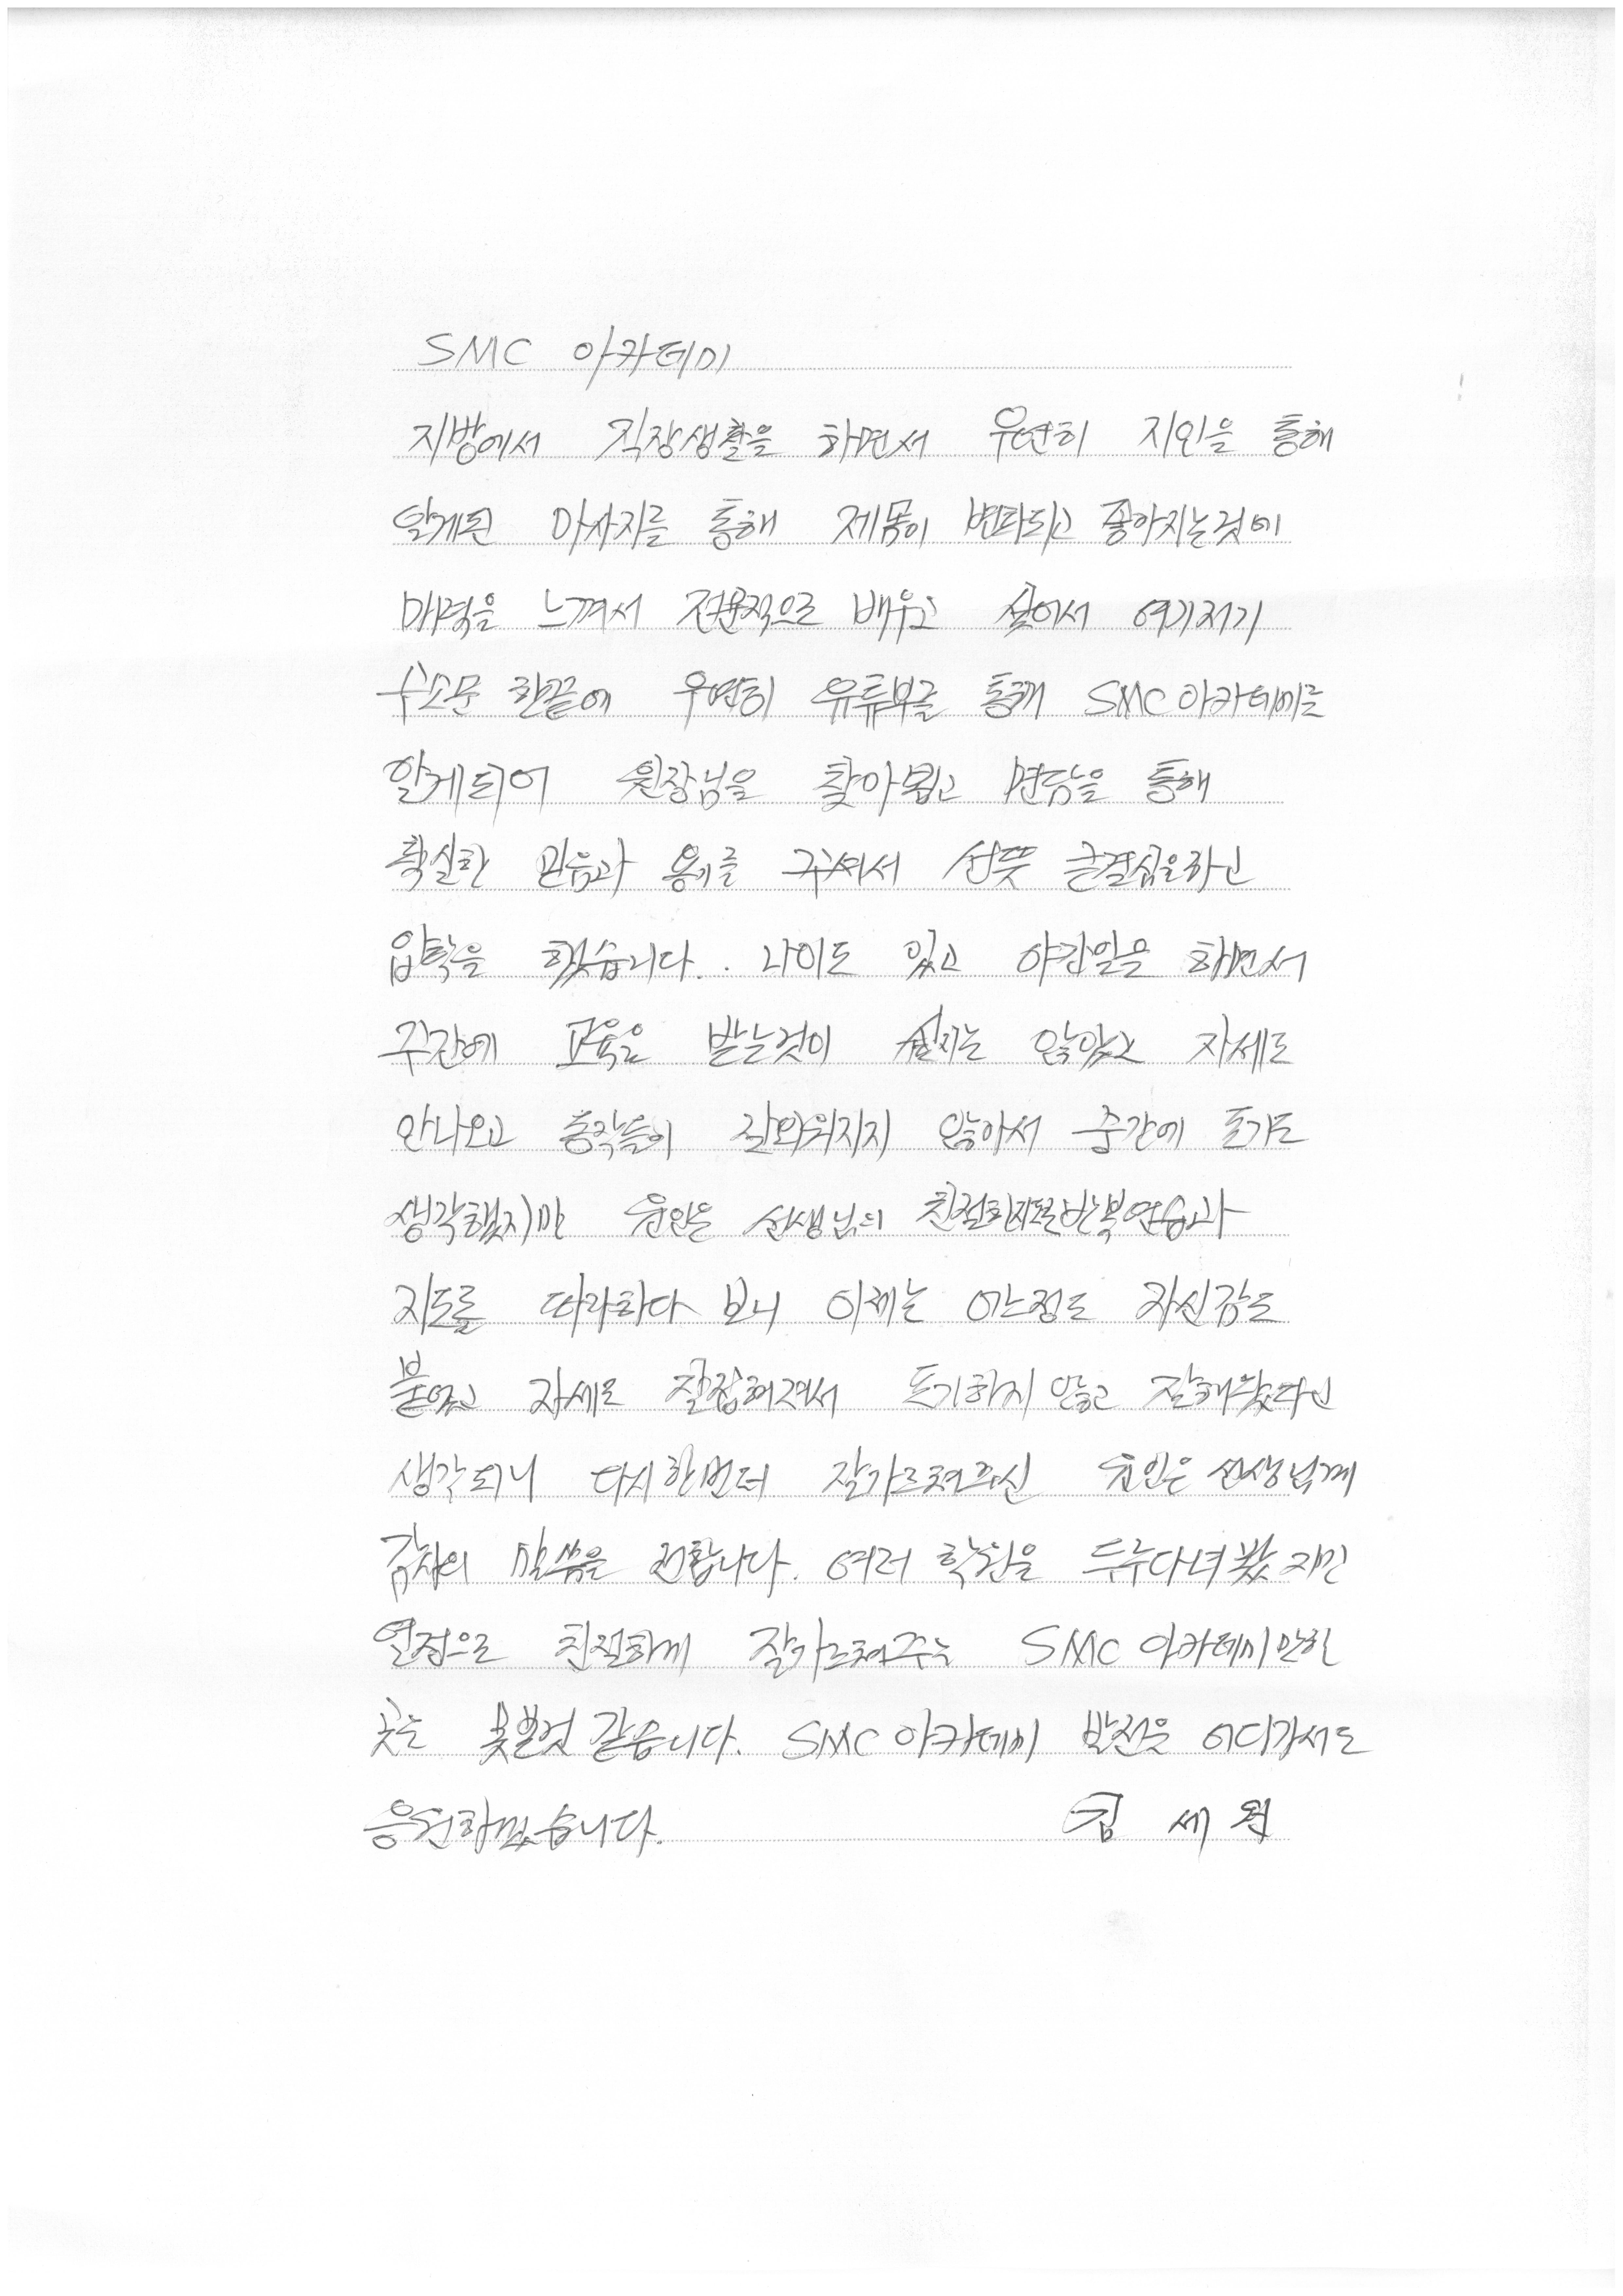 SMC 아카데미
지방에서 직장생활을 하면서 우연히 지인을 통해
알게된 마사지를 통해 제몸이 변화되고 좋아지는것에
매력을 느껴서 전문적으로 배우고 싶어서 여기저기
수소문 한끝에 우연히 유튜브를 통해 SMC아카데미를
알게되어 원장님을 찾아뵙고 면담을 통해
확실한 믿음과 용기를 주셔서 선뜻 큰결심을하고
입학을 했습니다.. 나이도 있고 야간일을 하면서
주간에 교육을 받는것이 쉽지는 않았고 자세도
안나오고 동작들이 잘외워지지 않아서 중간에 포기도
생각했지만 선생님의 과
지도를 따라하다 보니 이제는 어느정도 자신감도
붙었고 자세도 잘잡혀져서 포기하지 않고 잘해왔다고
생각되니 다시한번더 잘가르쳐주신 선생님께
감사의 말씀을 전합니다. 여러 학원을 두루다녀봤지만
열정으로 친절하게 잘가르쳐주는 SMC 아카데미만한
곳은 못볼것 같습니다. SMC 아카데미 발전을 어디가서도
응원하겠습니다. 김 세 원